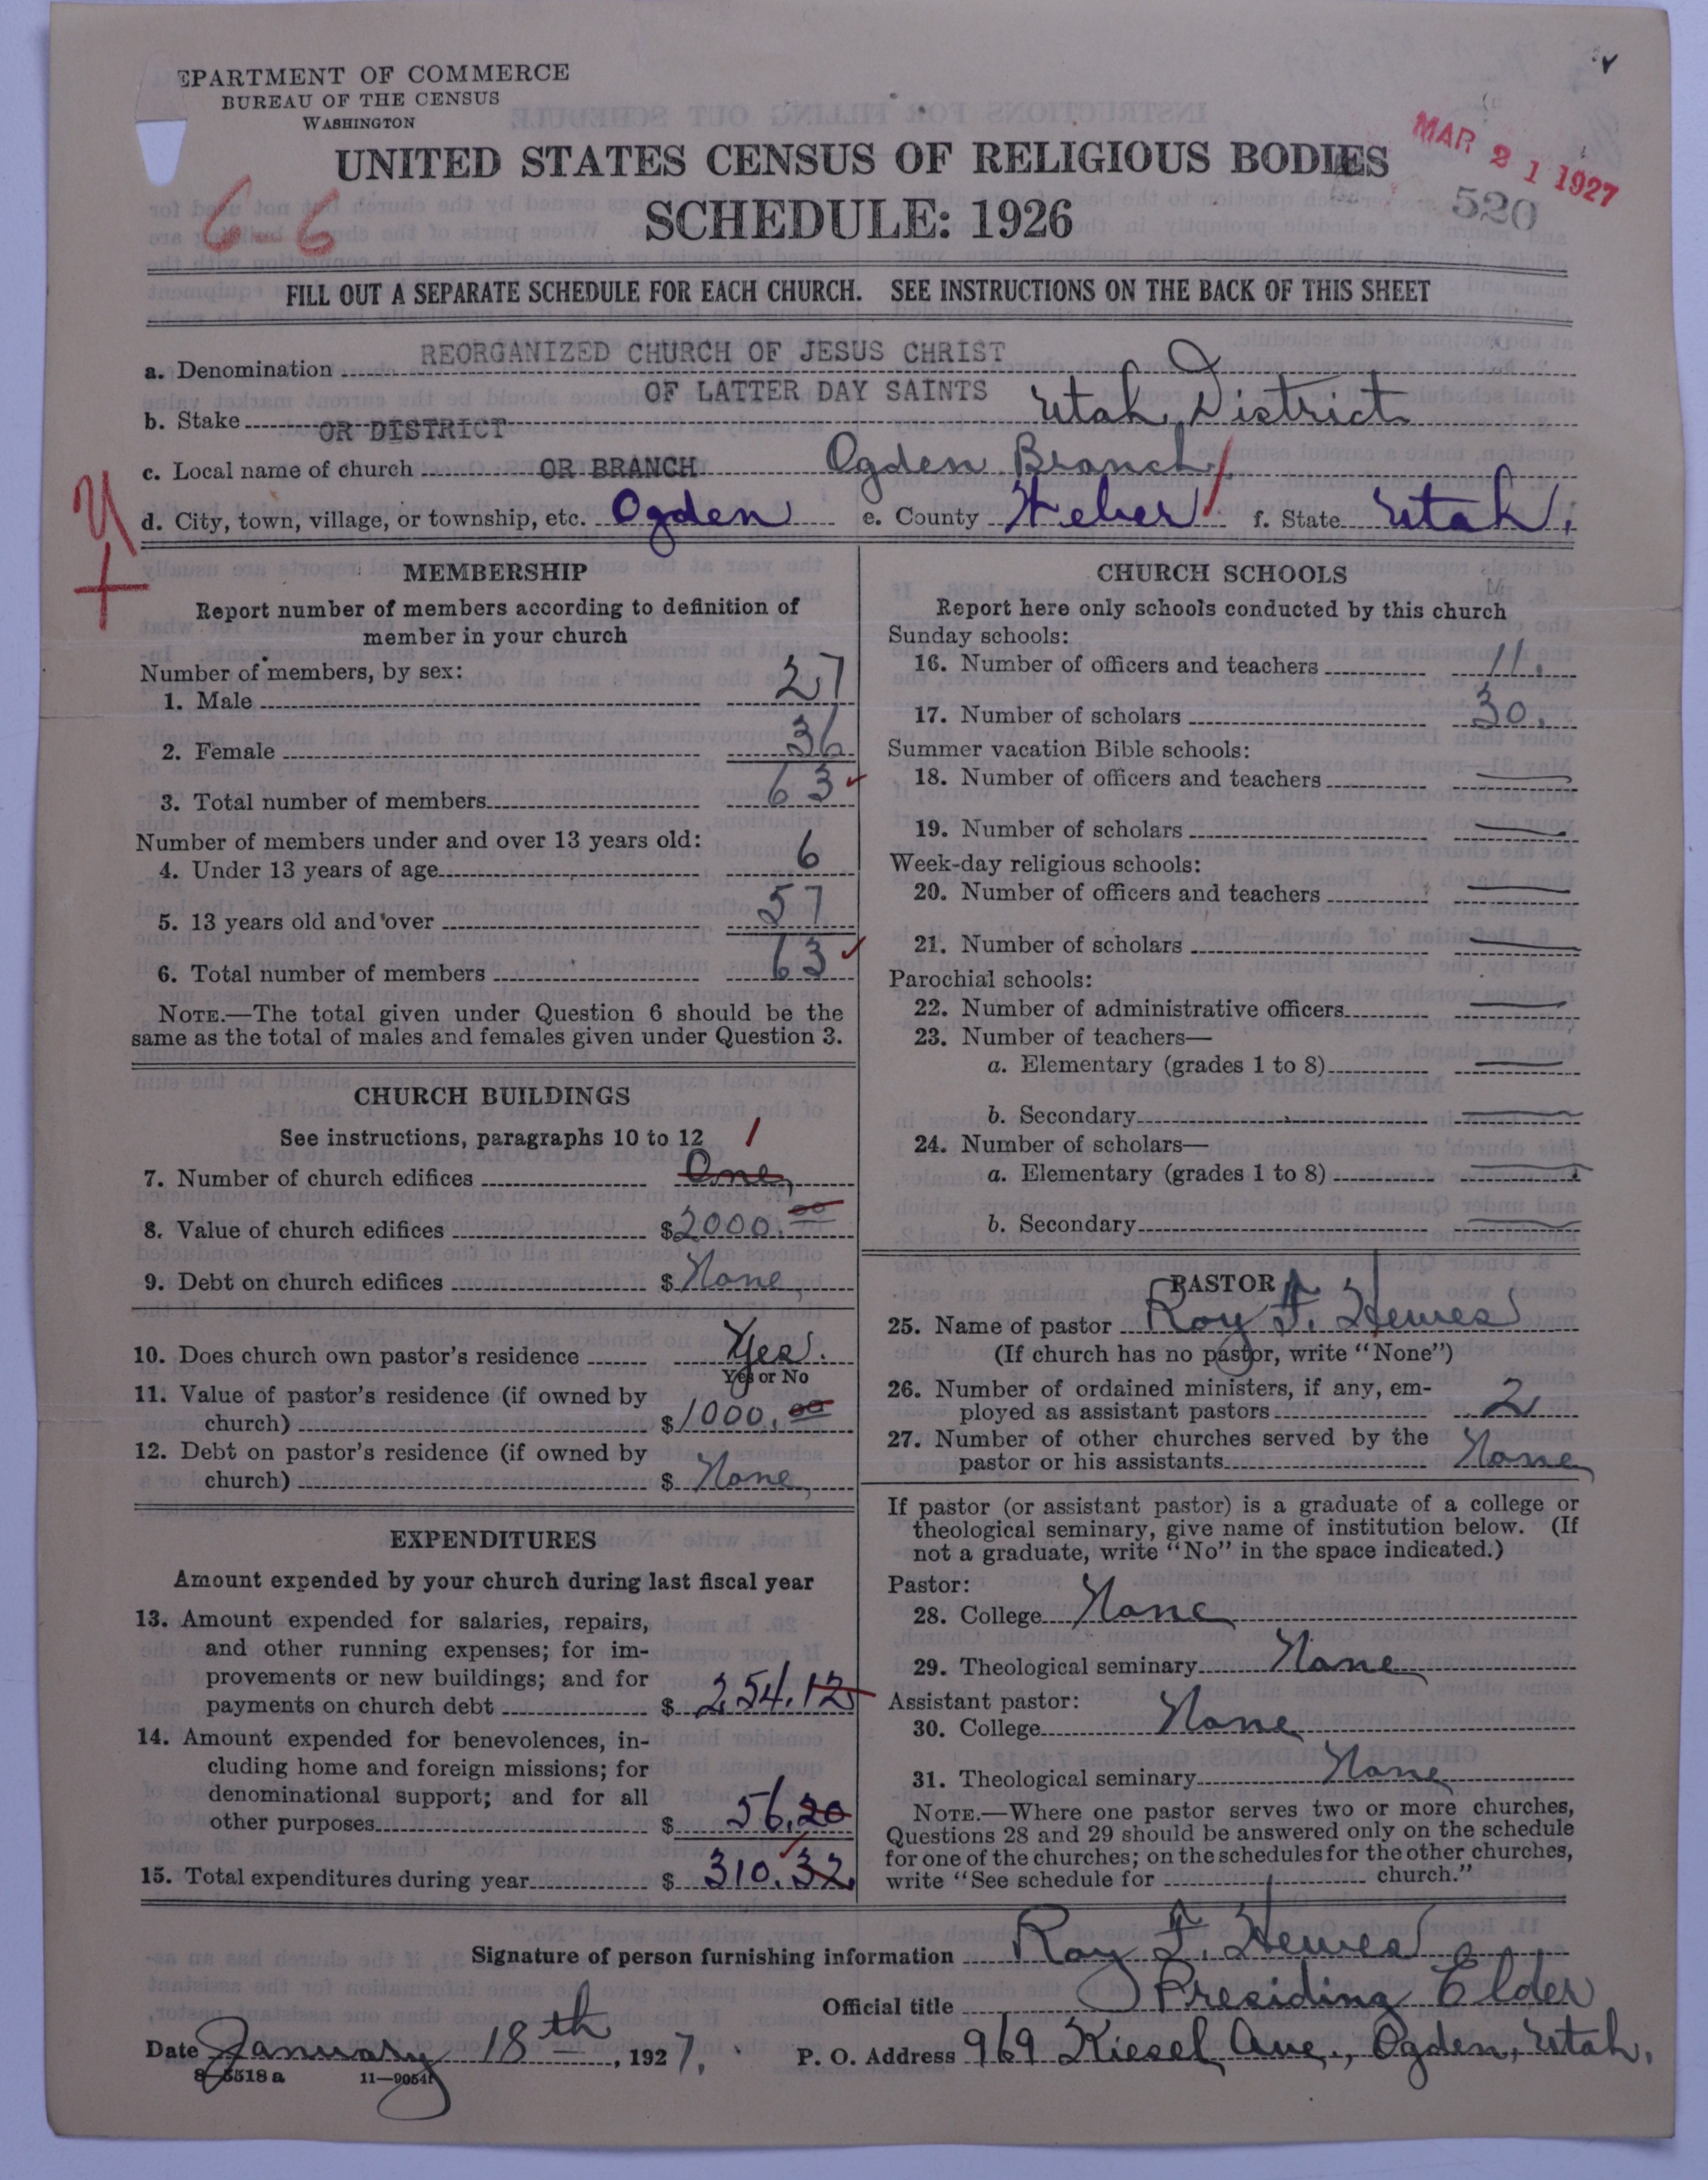 EPARTMENT OF COMMERCE
BUREAU OF THE CENSUS
WASHINGTON
UNITED STATES CENSUS OF RELIGIOUS BODIES
MAR 21 1927
520
6-6
SCHEDULE: 1926
FILL OUT A SEPARATE SCHEDULE FOR EACH CHURCH. SEE INSTRUCTIONS ON THE BACK OF THIS SHEET
a. Denomination REORGANIZED CHURCH OF JESUS CHRIST
OF LATTER DAY SAINTS
b. Stake OR DISTRICT Utah District
c. Local name of church OR BRANCH Ogden Branch
d. City, town, village, or township, etc. Ogden e. County Weber f. State Utah.
MEMBERSHIP
Report number of members according to definition of
member in your church
Number of members, by sex:
1. Male 27
2. Female 36
3. Total number of members 63
Number of members under and over 13 years old:
4. Under 13 years of age 6
5. 13 years old and over 57
6. Total number of members 63
NOTE.—The total given under Question 6 should be the
same as the total of males and females given under Question 3.
CHURCH BUILDINGS
See instructions, paragraphs 10 to 12
1
7. Number of church edifices One
8. Value of church edifices $2000.00
9. Debt on church edifices $ None
10. Does church own pastor's residence Yes.
Yes or No
11. Value of pastor's residence (if owned by
church) $1000.00
12. Debt on pastor's residence (if owned by
church) $ None
EXPENDITURES
Amount expended by your church during last fiscal year
13. Amount expended for salaries, repairs,
and other running expenses; for im-
provements or new buildings; and for
payments on church debt $ 254.12
14. Amount expended for benevolences, in-
cluding home and foreign missions; for
denominational support; and for all
other purposes $ 56.20
15. Total expenditures during year $ 310.32
CHURCH SCHOOLS
Report here only schools conducted by this church
Sunday schools:
16. Number of officers and teachers 11.
17. Number of scholars 30.
Summer vacation Bible schools:
18. Number of officers and teachers
19. Number of scholars
Week-day religious schools:
20. Number of officers and teachers
21. Number of scholars
Parochial schools:
22. Number of administrative officers
23. Number of teachers—
a. Elementary (grades 1 to 8)
b. Secondary
24. Number of scholars—
a. Elementary (grades 1 to 8)
b. Secondary
PASTOR
25. Name of pastor Roy F. Hewes
(If church has no pastor, write "None")
26. Number of ordained ministers, if any, em-
ployed as assistant pastors 2
27. Number of other churches served by the
pastor or his assistants None
If pastor (or assistant pastor) is a graduate of a college or
theological seminary, give name of institution below. (If
not a graduate, write "No" in the space indicated.)
Pastor:
28. College None
29. Theological seminary None
Assistant pastor:
30. College None
31. Theological seminary None
NOTE.—Where one pastor serves two or more churches,
Questions 28 and 29 should be answered only on the schedule
for one of the churches; on the schedules for the other churches,
write "See schedule for church."
Signature of person furnishing information Roy F. Hewes
Official title Presiding Elder
Date January 18th, 1927. P. O. Address 969 Kiesel Ave., Ogden, Utah.
8-5518a 11-9054